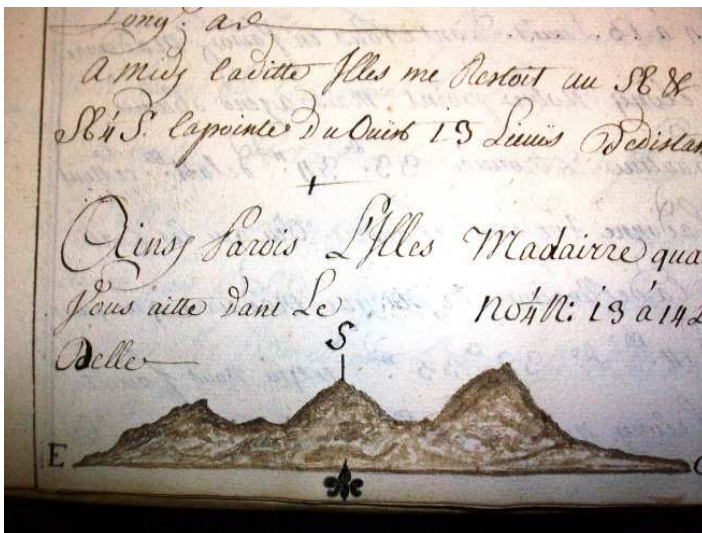 Long. ad
A midy laditte Illes me Restoit au SE &
SE¼S. la pointe Du Ouest 13 Lieuës De distan
Ainsy Parois L'Illes Madairre qua
Vous aitte dant Le NO¼N: 13 a 14 L
Delle
S
E O